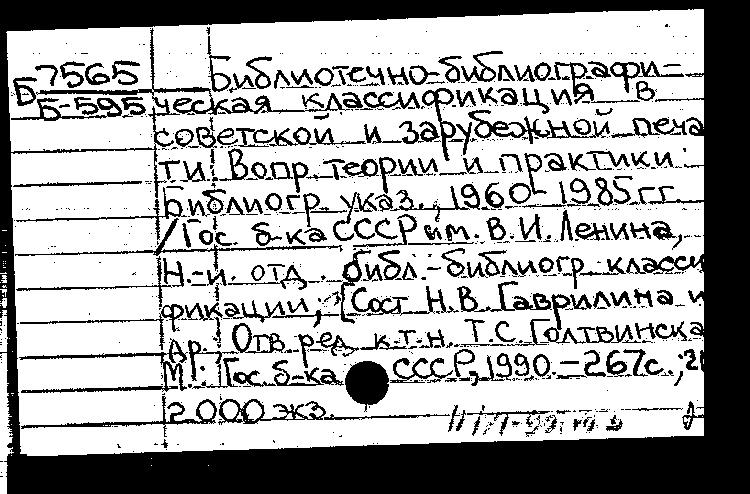 Б 7565 Библиотечно-библиографи-
Б-595 ческая классификация в
советской и зарубежной печа
ти: Вопр. теории и практики:
Библиогр. указ., 1960-1985гг.
/Гос. б-ка СССР им. В.И. Ленина,
Н.-и. отд. библ.-библиогр. класси
фикации; [Сост Н.В. Гаврилина и
др.; Отв ред к.т.н. Т.С. Голтвинска
М.: Гос. б-ка СССР, 1990.-267с.; 21
2.000 экз.